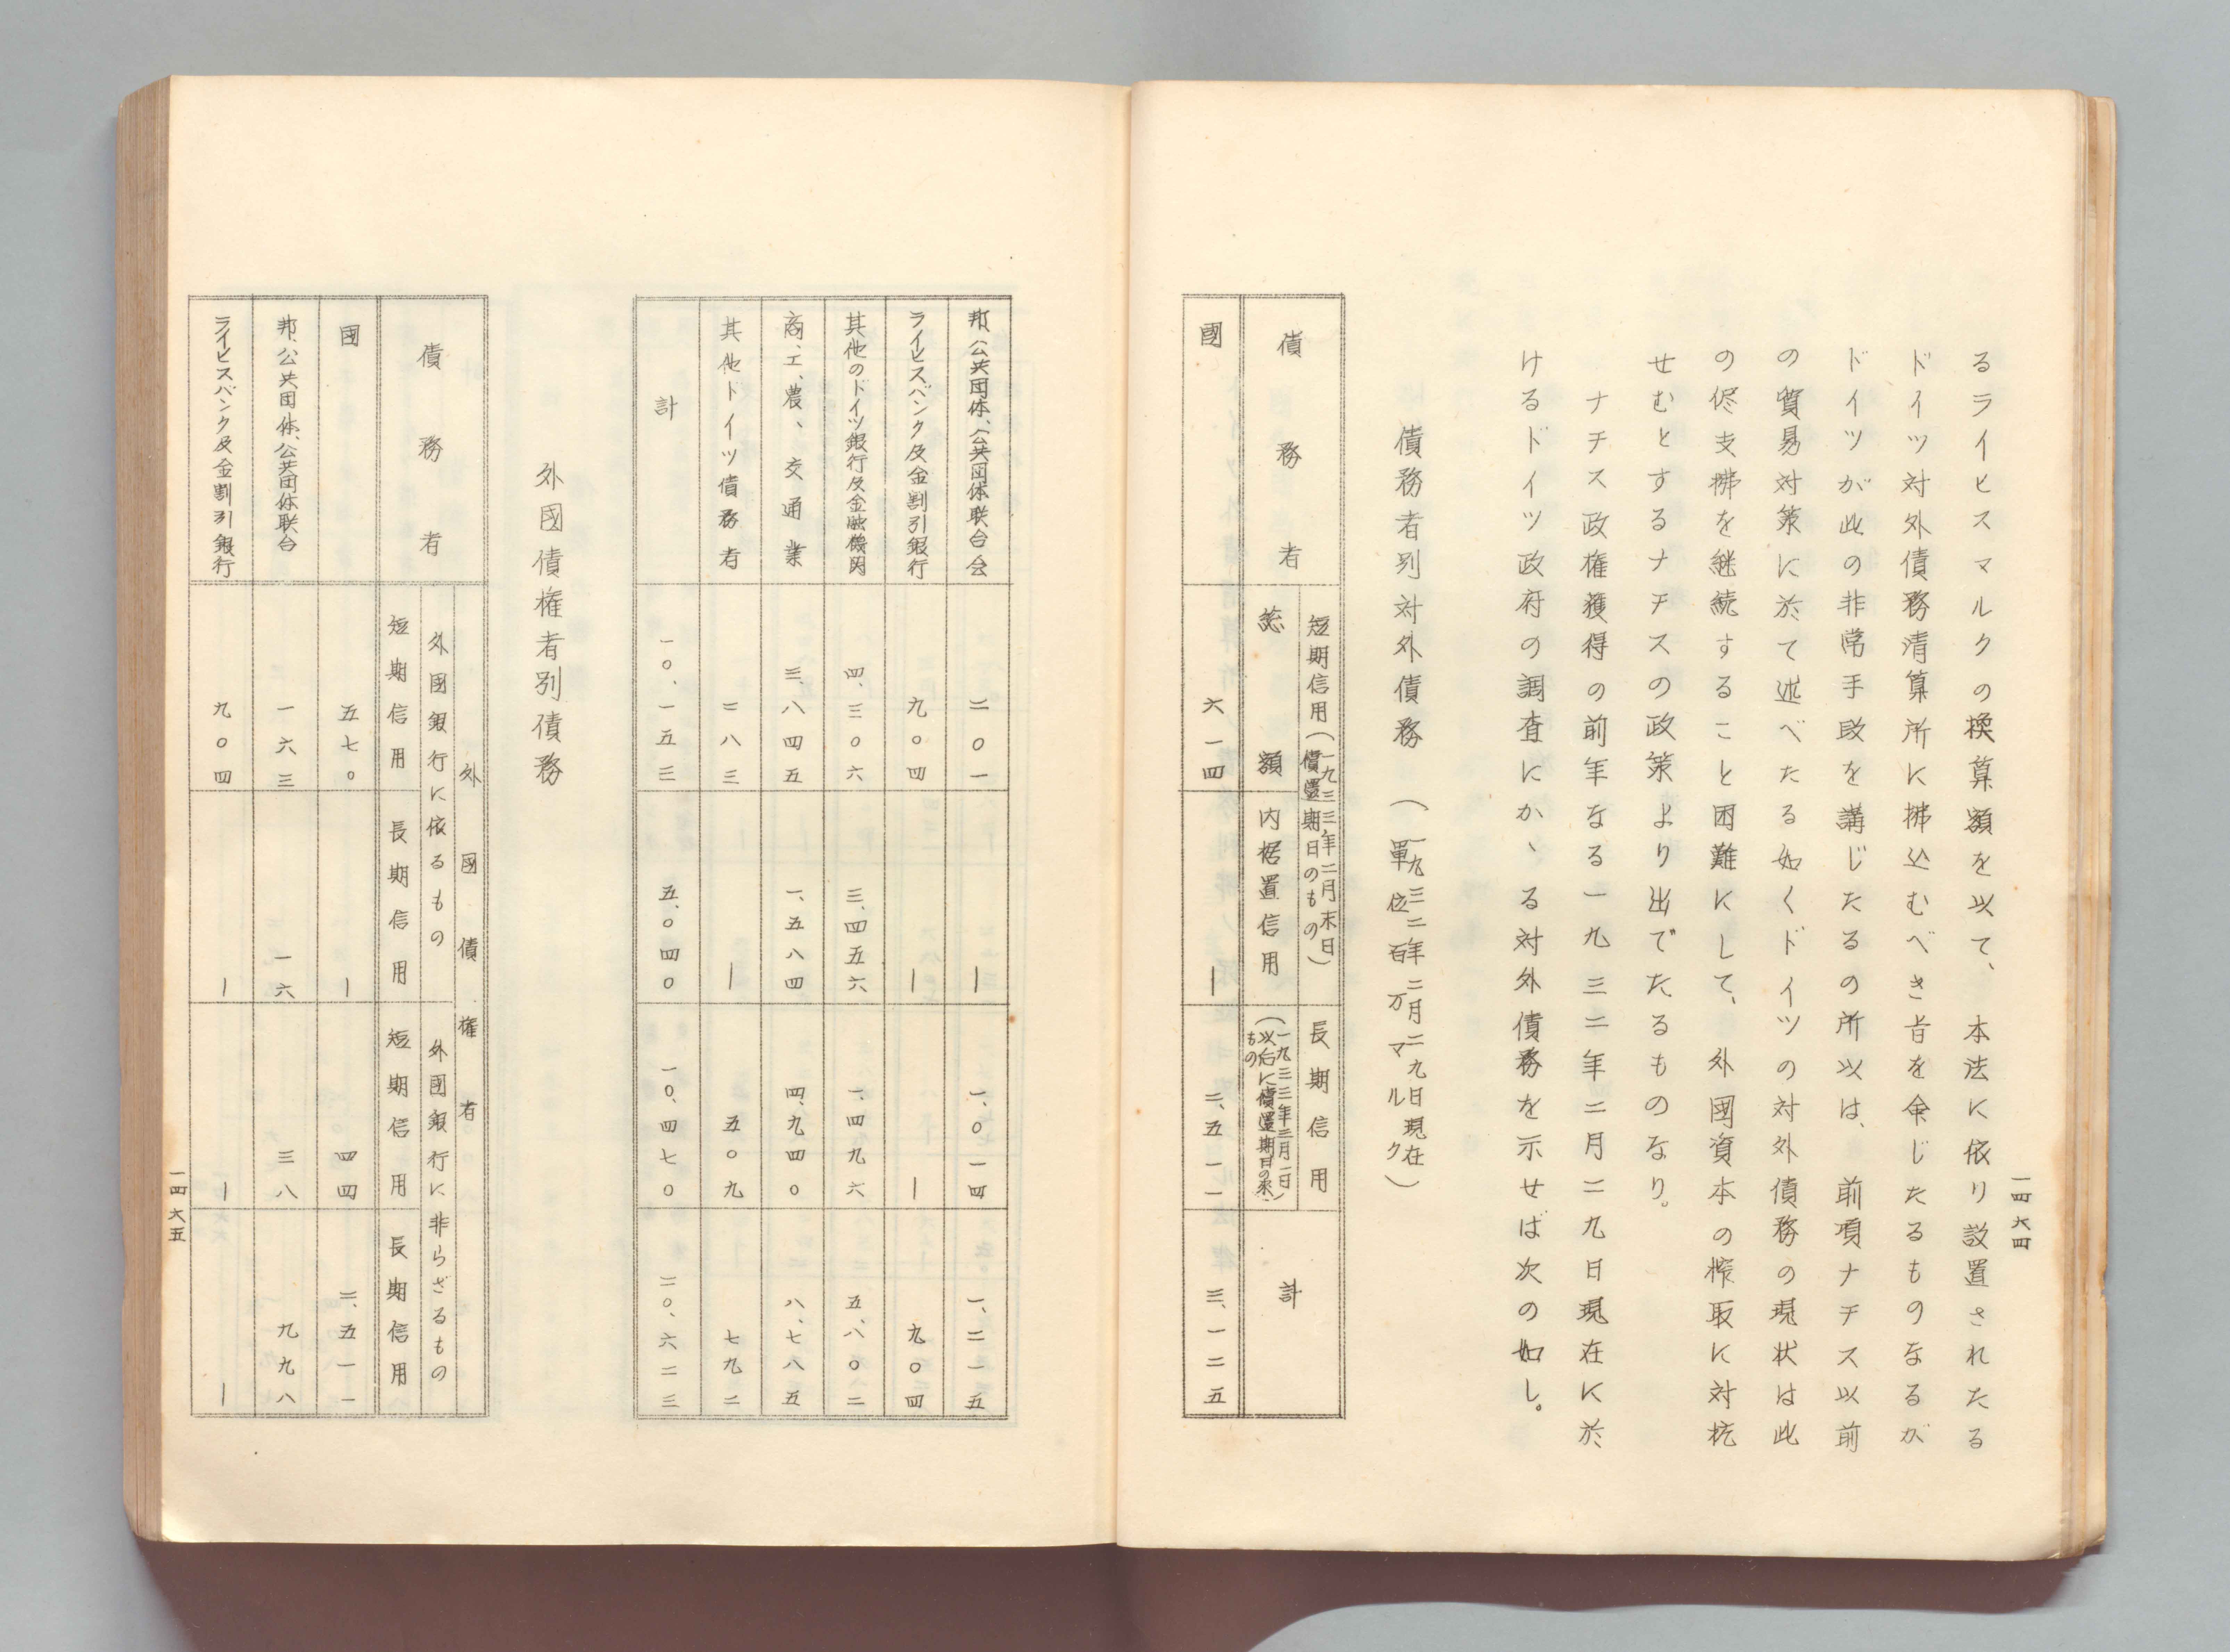 一四六四
るライヒスマルクの換算額を以て、本法に依り設置されたる
ドイツ対外債務清算所に拂込むべき旨を命じたるものなるが
ドイツが此の非常手段を講じたるの所以は、前項ナチス以前
の貿易対策に於て述べたる如くドイツの対外債務の現状は此
の侭支拂を継続すること困難にして、外國資本の榨取に対抗
せむとするナチスの政策より出でたるものなり。
ナチス政権獲得の前年なる一九三二年二月二九日現在に於
けるドイツ政府の調査にかゝる対外債務を示せば次の如し。
債務者別対外債務(一九三二年二月二九日現在 單位百万マルク)
債務者
短期信用(一九三三年二月末日償還期日のもの)
総額
内据置信用
長期信用
(一九三三年三月一日以后に償還期日の来るもの)
計
國 六一四 ー 二、五一一 三、一二五
邦、公共団体、公共団体联合会 二〇一 ー 一、〇一四 一、二一五
ライヒスバンク及金割引銀行 九〇四 ー ー 九〇四
其他のドイツ銀行及金融機関 四、三〇六 三、四五六 一、四九六 五、八〇二
商、工、農、交通業 三、八四五 一、五八四 四、九四〇 八、七八五
其他ドイツ債務者 二八三 ー 五〇九 七九二
計 一〇、一五三 五、〇四〇 一〇、四七〇 二〇、六二三
外國債権者別債務
債務者
外國債権者
外國銀行に依るもの
外國銀行に非らざるもの
短期信用
長期信用
短期信用
長期信用
國 五七〇 ー 四四 二、五一一
邦、公共団体、公共団体联合 一六三 一六 三八 九九八
ライヒスバンク及金割引銀行 九〇四 ー ー ー
一四六五